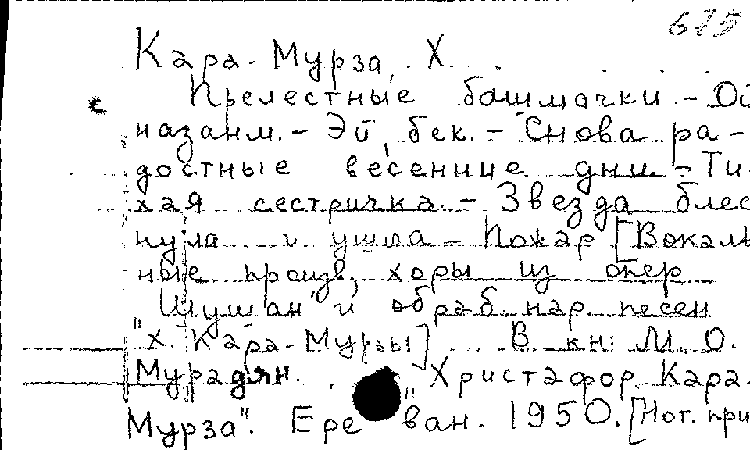 675
Кара-Мурза, Х.
Прелестные башмачки. - Ой
назанм. - Эй, бек. - Снова ра-
достные весенние дни. - Ти-
хая сестричка. - Звезда блес-
нула и ушла - Пожар [Вокаль
ные произв, хоры из опер
"Шушан" и обраб. нар. песен
"Х. Кара-Мурзы]. В кн: М. О.
Мурадян. "Христафор Кара-
Мурза". Ереван. 1950. [Нот. при